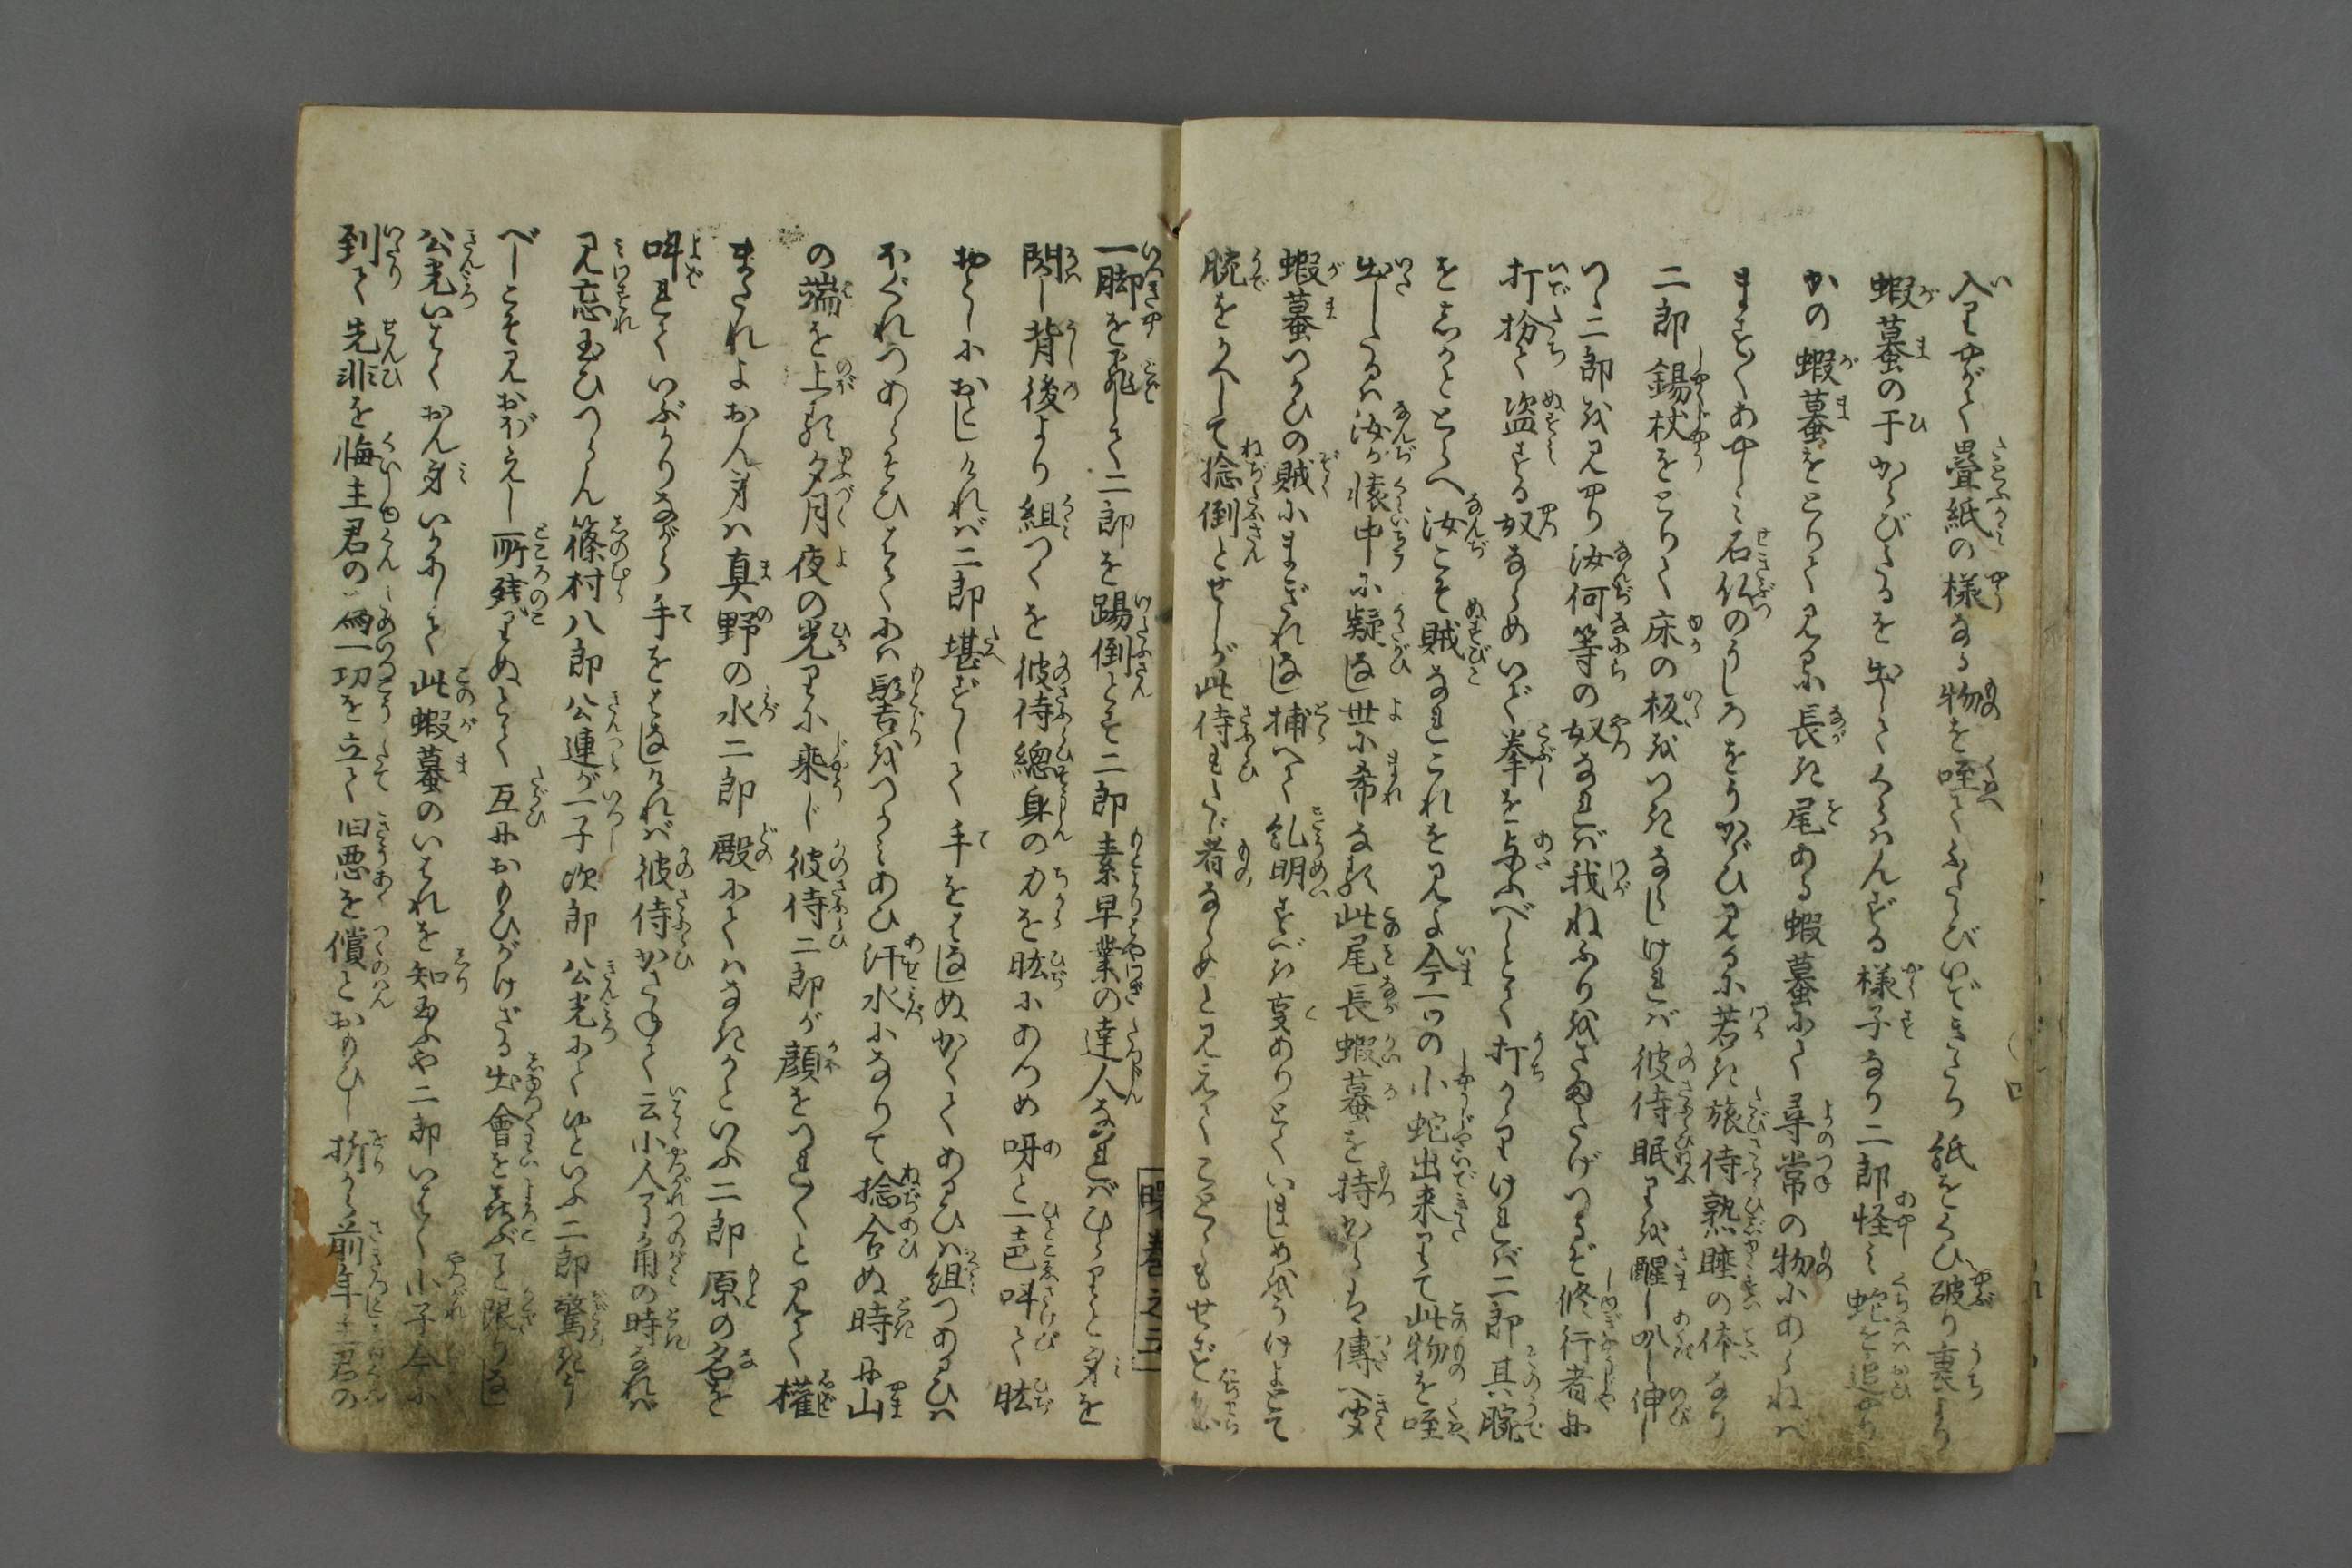 入りやがて畳紙の様なる物を咥てふたゝびいできたり紙をくひ破り裏より
蝦蟇の干からびたるを出してくらはんずる様子なり二郎怪み蛇を追やり
かの蝦蟇をとりて見るに長き尾ある蝦蟇にて尋常の物にあらねば
ますゝゝあやしみ石仏のうしろをうかゞひ見るに若き旅侍熟睡の体なり
二郎錫杖をとりて床の板をつきならしければ彼侍眠りを醒し叭し伸し
つゝ二郎を見やり汝何等の奴なれば我ねふりをさまたげつるぞ修行者に
打扮て盗する奴ならめいで拳を与ふべしとて打かゝりければ二郎其腕
をしかととらへ汝こそ賊なれこれを見よ今一ツの小蛇出来りて此物を咥
出したるは汝が懐中に疑ひなし世に希なる此尾長蝦蟇を持からは傳へ聞
蝦蟇つかひの賊にまぎれなし捕へて糺明すべき事ありとていましめをうけよとて
腕をかへして捻倒さんとせしが此侍もたゞ者ならめと見えてことゝもせず
一脚を飛して二郎を踢倒さんとす二郎素早業の達人なればひらりと身を
閃し背後より組つくを彼侍總身の力を肱にあつめ呀と一声叫て肱
おとしにおとしければ二郎堪ずして手をはなしぬかくてあるひは組つめあるひは
ほぐれつあらそひはてには髻をつかみあひ汗水になりて捻合ぬ時に山
の端を上る夕月夜の光りに乗じ彼侍二郎が顔をつれゝゝと見て權
まぎれよおん身は真野の水二郎殿にてはなきかといふ二郎原の名を
呼れていぶかりながら手をはなしければ彼侍かさねて云小人つの角の時なれば
見忘玉ひつらん篠村八郎公連が一子次郎公光にて候といふ二郎驚きう
べこそ見おぼえし所残りぬとて互におもひがけざる出會を喜ぶこと限りなし
公光いはくおん身いかにして此蝦蟇のいはれを知玉ふや二郎いはく小子今に
到て先非を悔主君の為一功を立て旧悪を償んとおもひし折から前年主君の
巻之三